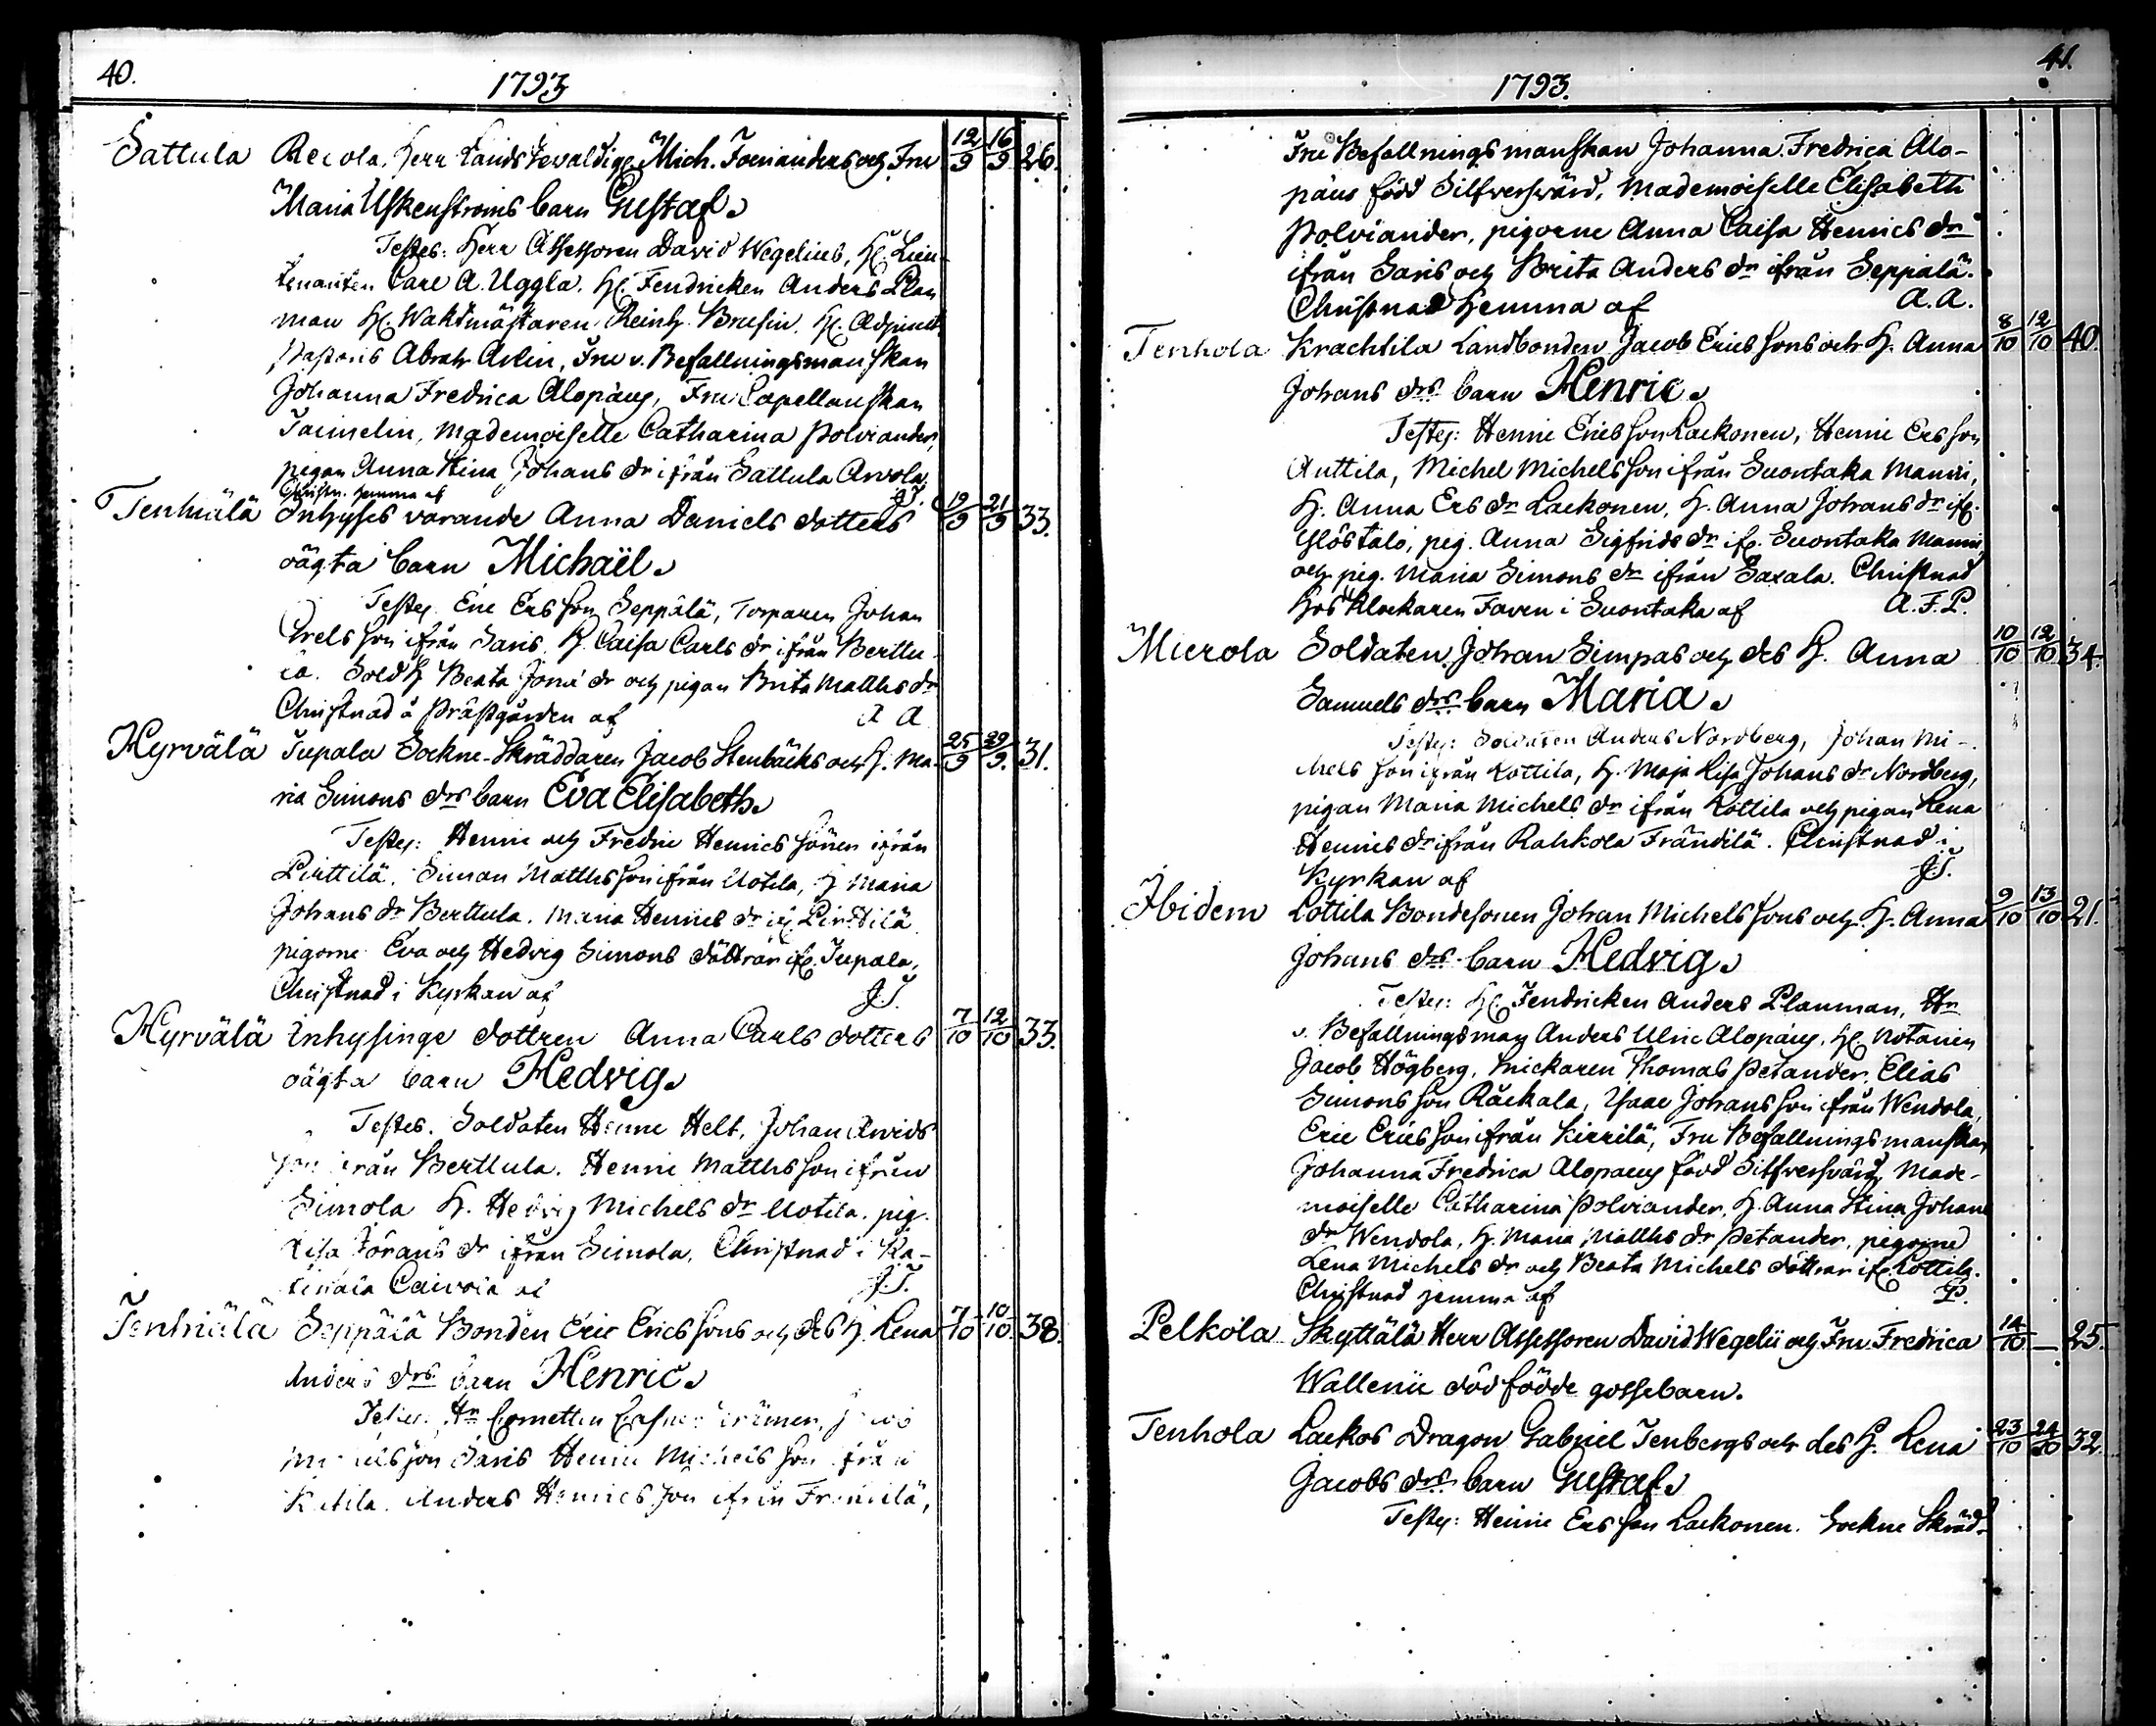 40.
1793
Sattula Recola. Herr Landsfiscaldige Mich. Fornanders och Fru 12/9 16/9 26.
Maria Uskenströms barn Gustaf.
Testes: Herr Assessoren David Wegelius, H. Lieu-
tenanten Carl A. Uggla. H. Fendricken Anders Plan
man H. Waktmästaren Reinh. Brusin. H. Adjunct.
Pastoris Abrah. Arlin, Fru v. Befallningsmanskan
Johanna Fredrica Alopäus, Fru Capellanskan
Taimelin, Mademoiselle Catharina Polviander,
pigan Anna Stina Johans dr ifrån Sattula Arvola.
Christn. hemma af J.T.
Tenhiälä Inhyses varande Anna Daniels dotters 19/9 21/9 33.
oägta barn Michaël.
Testes. Eric Ers son Seppälä, Torparen Johan
Carels son ifrån Saris. H. Caisa Carls dr ifrån Berttu-
la. Sold H Beata Jona dr och pigan Brita Matths dr
Christnad å Prästgården af A A
Hyrvälä Jupala Sockne-Skräddaren Jacob Stenbäcks och H. Ma- 25/9 29/9. 31.
ria Simons drs barn Eva Elisabeth.
Testes: Henric och Fredric Henrics söner ifrån
Pirttilä. Simon Matths son ifrån Uotila, H Maria
Johans dr Berttula. Maria Henrics dr if. Pirttilä
pigorne Eva och Hedvig Simons döttrar if. Jupala,
Christnad i Kyrkan af J.T.
Hyrvälä Inhysinge dottren Anna Carls dotters 7/10 12/10 33.
oägta barn Hedvig.
Testes. Soldaten Henric Helt, Johan Arvids
son ifrån Berttula. Henric Matths son ifrån
Simola H. Hedvig Michels dr Uotila. pig.
Lisa Jörans dr ifrån Simola. Christnad i Ka-
Caivola af J.T.
Tenhiälä Seppälä Bonden Eric Erics sons och des H. Lena 7/10 10/10 38.
Anders drs barn Henric.
Testes. Hr Cornetten
son Saris Henric Michels son ifrån
Anders Henrics son ifrån
41.
1793.
Fru Befallningsmanskan Johanna Fredrica Alo-
päus född Silfversvärd, Mademoiselle Elisabeth
Polviander, pigorne Anna Caisa Henrics dr
ifrån Saris och Brita Anders dr ifrån Seppälä.
Christnad hemma af A.A.
Tenhola Krachtila Landbonden Jacob Erics sons och H. Anna 8/10 12/10 40.
Johans drs barn Henric.
Testes: Henric Erics son Laekonen, Henric Ers son
Anttila, Michel Michels son ifrån Suontaka Manni,
H. Anna Ers dr Laekonen, H. Anna Johans dr if.
Ylöstalo, pig. Anna Sigfrids dr if. Suontaka Manni,
och pig. Maria Simons dr ifrån Saxala. Christnad
hos Klockaren Faven i Suontaka af A.F.P.
Mierola Soldaten Johan Simpas och des H. Anna 10/10 12/10 34.
Samuels drs barn Maria.
Testes: Soldaten Anders Nordberg, Johan Mi-
chels son ifrån Kottila, H. Maja Lisa Johans dr Nordberg,
pigan Maria Michels dr ifrån Kottila och pigan Lena
Henrics dr ifrån Rahkola Fräntilä. Christnad i
Kyrkan af J.T.
Ibidem Lottila Bondesonen Johan Michels sons och H. Anna 9/10 13/10 21.
Johans drs barn Hedvig.
Testes: H. Fendricken Anders Planman, Hr
v. Befallningsman Anders Ulric Alopäus, H. Notarien
Jacob Högberg, Snickaren Thomas Petander, Elias
Simons son Räckala, Isaac Johans son ifrån Wendola,
Eric Erics son ifrån Kirrilä, Fru Befallningsmanskan
Johanna Fredrica Alopaeus född Silfversvärd, Made-
moiselle Catharina Polviander, H. Anna Stina Johans
dr Wendola, H. Maria Matths dr Petander, pigorne
Lena Michels dr och Beata Michels döttrar if. Lottila.
Christnad hemma af P.
Pelkola Skyttälä Herr Assessoren David Wegelii och Fru Fredrica 14/10 — 25.
Wallenii dödfödde gossebarn.
Tenhola Laekos Dragon Gabriel Tenbergs och des H. Lena 23/10 24/10 32.
Jacobs drs barn Gustaf.
Testes: Henric Ers son Laekonen. Sockne Skräd-